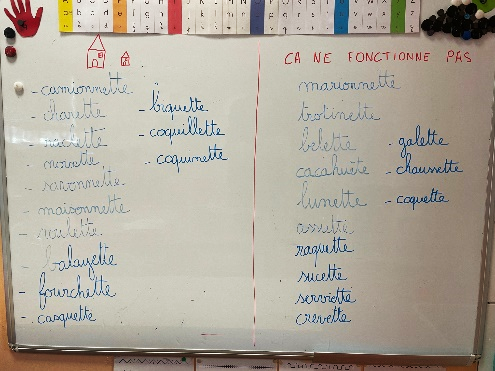 CA NE FONCTIONNE PAS
- camionnette
- charette
- raclette
- savonnette
- maisonnette
- roulette
- balayette
- fourchette
- casquette
- biquette
- coquillette
- coquinette
marionnette
trotinette
belette
cacahuète
lunette
assiette
raquette
sucette
serviette
crevette
- galette
- chaussette
- coquette